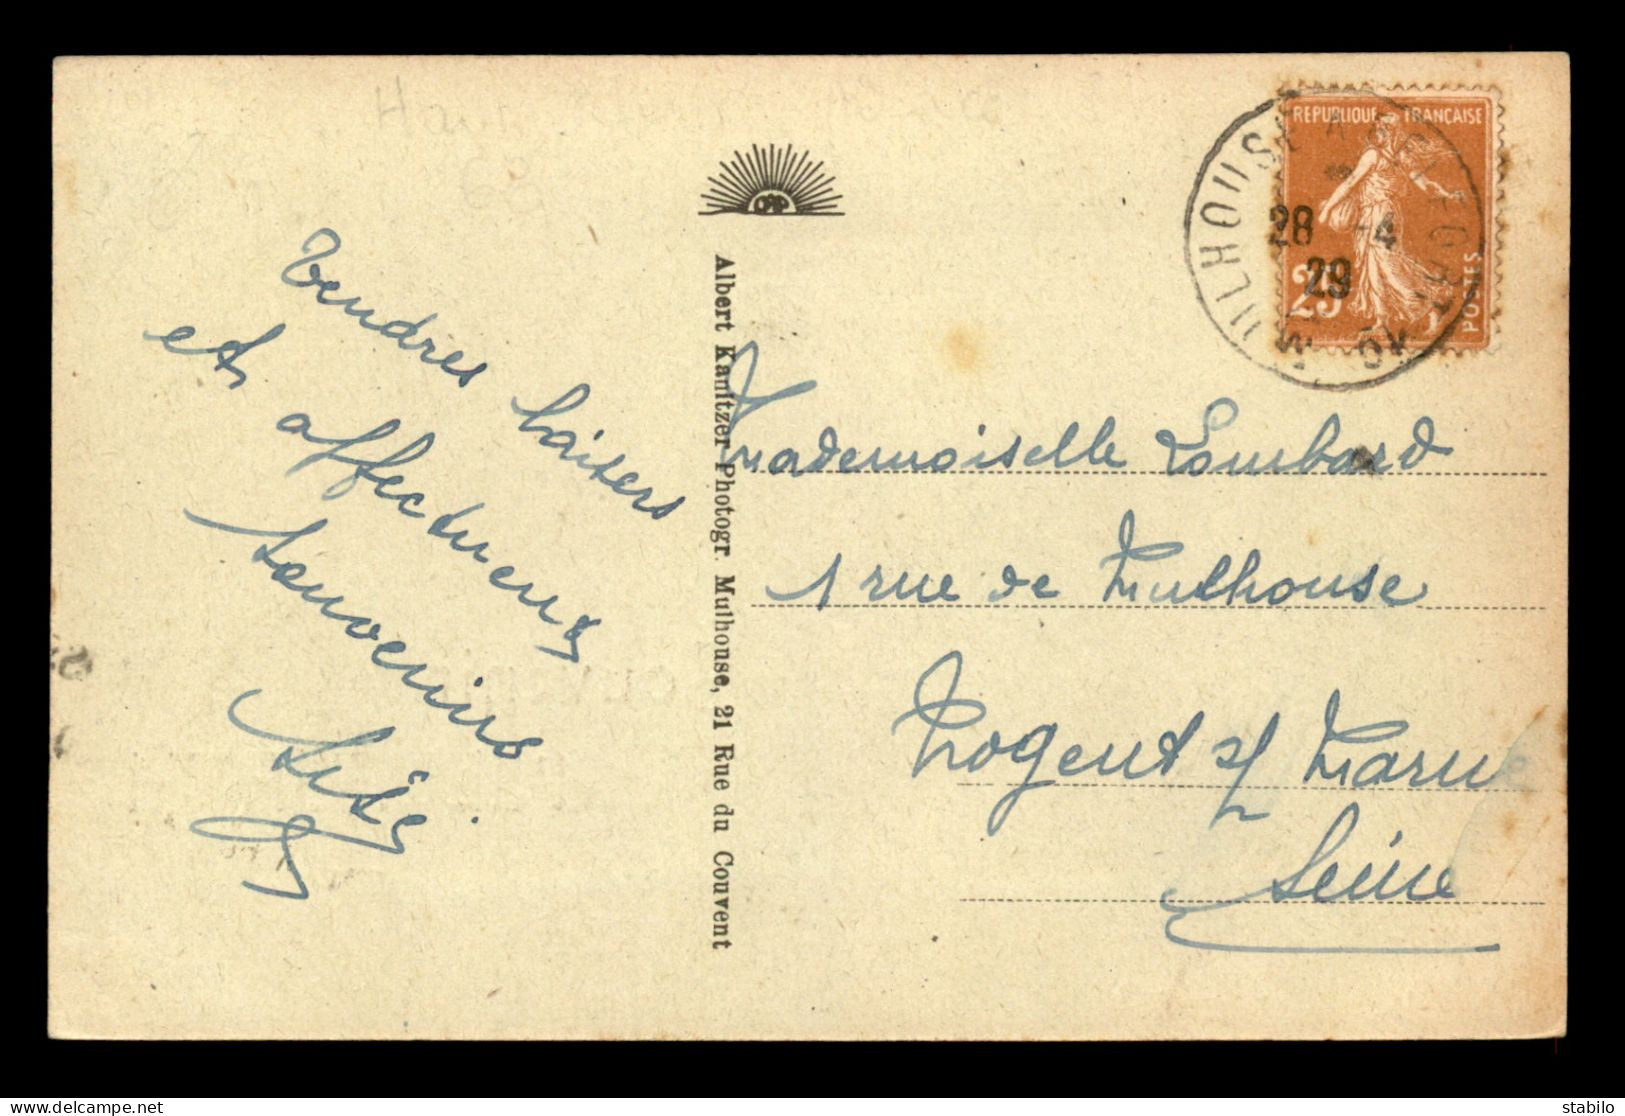 Tendres baisers
et affectueux
souvenirs
Albert Kanitzer Photogr. Mulhouse, 21 Rue du Couvent
REPUBLIQUE FRANÇAISE
25
POSTES
MULHOUSE
28 -4
29
Mademoiselle Lombard
1 rue de Mulhouse
Nogent s/ Marne
Seine
stabilo